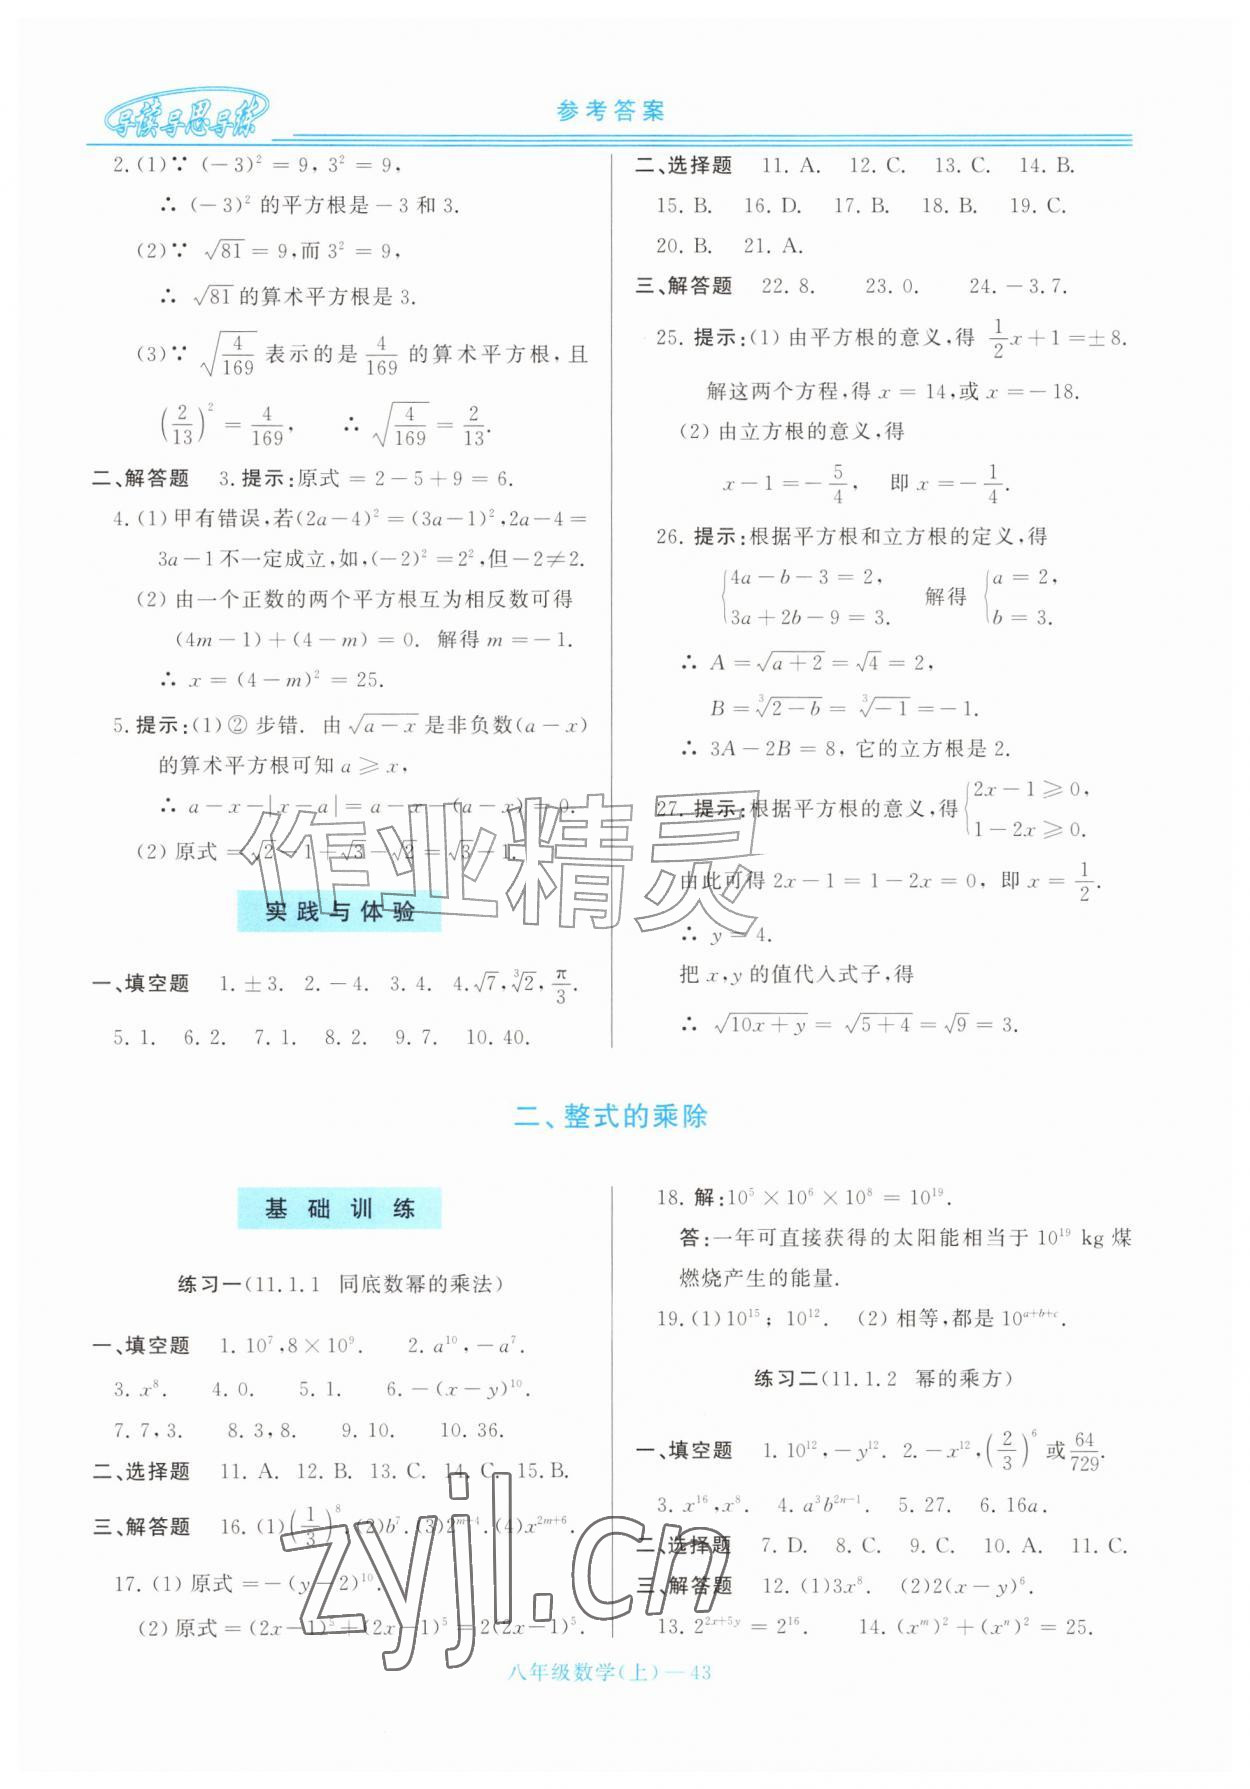 导读导思导练
参考答案
2. (1)∵ (-3)² = 9, 3² = 9,
∴ (-3)² 的平方根是 -3 和 3.
(2)∵ √81 = 9, 而 3² = 9,
∴ √81 的算术平方根是 3.
(3)∵ √(4/169) 表示的是 4/169 的算术平方根, 且
(2/13)² = 4/169, ∴ √(4/169) = 2/13.
二、解答题 3. 提示: 原式 = 2-5+9 = 6.
4. (1) 甲有错误, 若(2a-4)² = (3a-1)², 2a-4 =
3a-1 不一定成立, 如, (-2)² = 2², 但 -2≠2.
(2) 由一个正数的两个平方根互为相反数可得
(4m-1)+(4-m) = 0. 解得 m = -1.
∴ x = (4-m)² = 25.
5. 提示: (1) ② 步错. 由 √(a-x) 是非负数(a-x)
的算术平方根可知 a ≥ x,
∴ a-x-|x-a| = a-x-(a-x) = 0.
(2) 原式 = √2-1-√3-√2 = √3-1.
实践与体验
一、填空题 1. ±3. 2. -4. 3. 4. 4. √7, ³√2, π/3.
5. 1. 6. 2. 7. 1. 8. 2. 9. 7. 10. 40.
二、选择题 11. A. 12. C. 13. C. 14. B.
15. B. 16. D. 17. B. 18. B. 19. C.
20. B. 21. A.
三、解答题 22. 8. 23. 0. 24. -3.7.
25. 提示: (1) 由平方根的意义, 得 1/2x+1 = ±8.
解这两个方程, 得 x = 14, 或 x = -18.
(2) 由立方根的意义, 得
x-1 = -5/4, 即 x = -1/4.
26. 提示: 根据平方根和立方根的定义, 得
{4a-b-3 = 2, 3a+2b-9 = 3. 解得 {a = 2, b = 3.
∴ A = √(a+2) = √4 = 2,
B = ³√(2-b) = ³√(-1) = -1.
∴ 3A-2B = 8, 它的立方根是 2.
27. 提示: 根据平方根的意义, 得 {2x-1 ≥ 0, 1-2x ≥ 0.
由此可得 2x-1 = 1-2x = 0, 即 x = 1/2.
∴ y = 4.
把 x, y 的值代入式子, 得
∴ √(10x+y) = √(5+4) = √9 = 3.
作业精灵
二、整式的乘除
基础训练
练习一(11.1.1 同底数幂的乘法)
一、填空题 1. 10⁷, 8×10⁹. 2. a¹⁰, -a⁷.
3. x⁸. 4. 0. 5. 1. 6. -(x-y)¹⁰.
7. 7, 3. 8. 3, 8. 9. 10. 10. 36.
二、选择题 11. A. 12. B. 13. C. 14. C. 15. B.
三、解答题 16. (1)(1/3)⁸. (2)b⁷. (3)2ᵐ⁺⁴. (4)x²ᵐ⁺⁶.
17. (1) 原式 = -(y-2)¹⁰.
(2) 原式 = (2x-1)⁵+(2x-1)⁵ = 2(2x-1)⁵.
18. 解: 10⁵×10⁶×10⁸ = 10¹⁹.
答: 一年可直接获得的太阳能相当于 10¹⁹ kg 煤
燃烧产生的能量.
19. (1)10¹⁵; 10¹². (2) 相等, 都是 10ᵃ⁺ᵇ⁺ᶜ.
练习二(11.1.2 幂的乘方)
一、填空题 1. 10¹², -y¹². 2. -x¹², (2/3)⁶ 或 64/729.
3. x¹⁶, x⁸. 4. a³b²ⁿ⁻¹. 5. 27. 6. 16a.
二、选择题 7. D. 8. C. 9. C. 10. A. 11. C.
三、解答题 12. (1)3x⁸. (2)2(x-y)⁶.
13. 2²ˣ⁺⁵ʸ = 2¹⁶. 14. (xᵐ)²+(xⁿ)² = 25.
zyjl.cn
八年级数学(上)—43